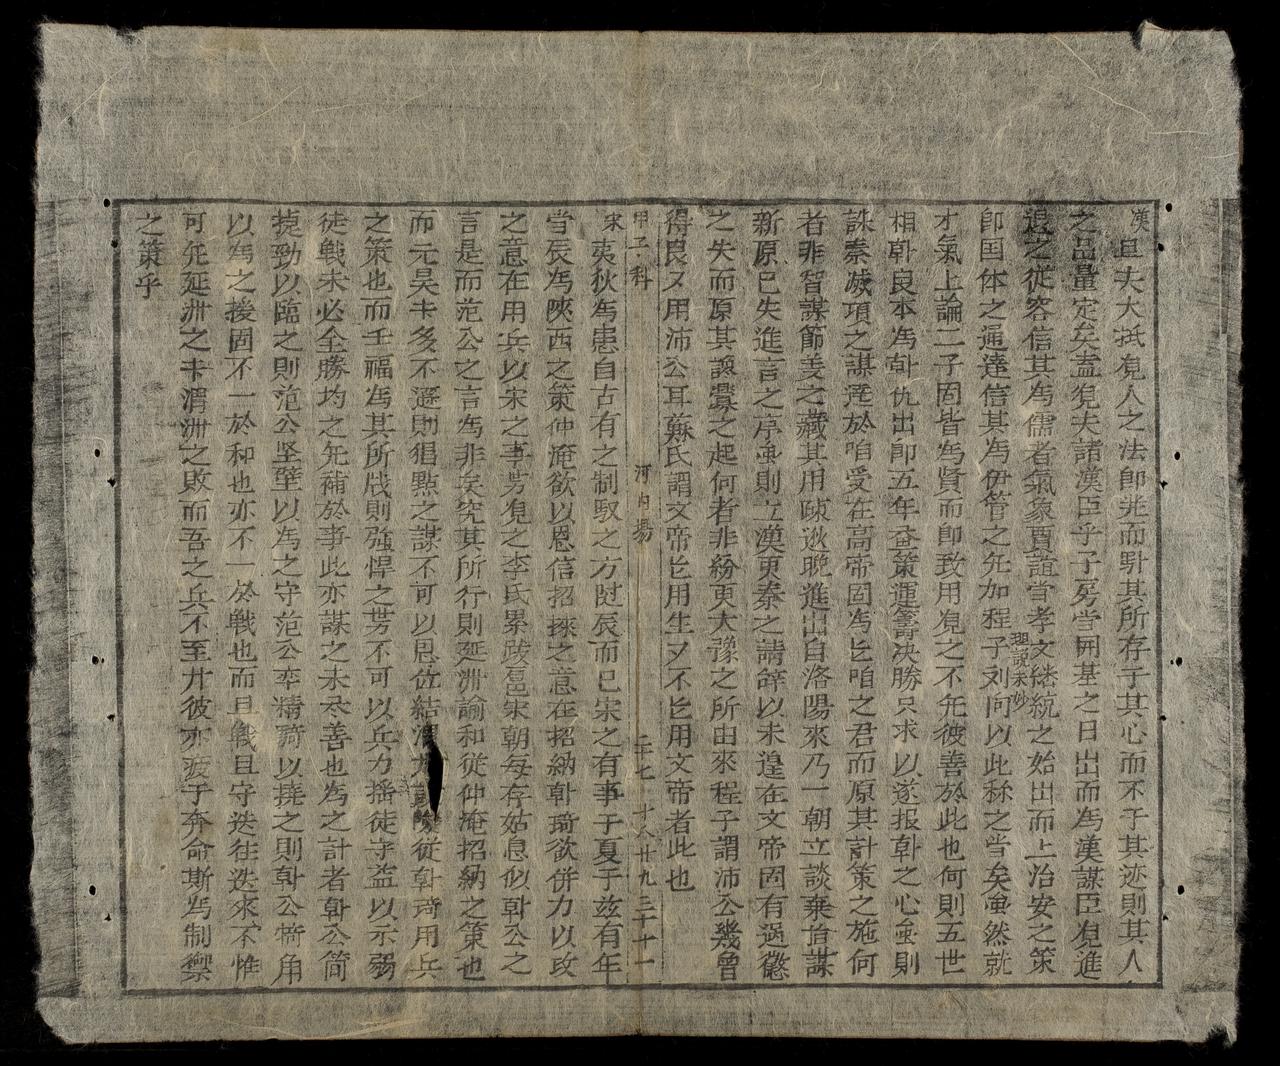 漢且夫大抵覌人之法卽迹而騐其所存于其心而不于其迹則其人
之品量定矣盍覌夫諸漢臣乎子房当開基之日出而為漢謀臣覌進
退之從容信其為儒者氣象賈誼当孝文継統之始出而上治安之策
卽国体之通達信其為伊管之先加程子刘向以此称之当矣虽然就
理説未妙
才氣上論二子固皆為賢而卽致用覌之不先彼善於此也何則五世
相韩良本為韩仇出卽五年奋策運籌决勝只求以遂报韩之心虽则
誅秦㓕項之謀産於咱受在高帝固為㠯咱之君而原其計策之施何
者非智謀節义之藏其用 逊晚進出自洛陽來乃一朝立談棄怡謀
新原已失進言之序虽則立漢更秦之請辞以未遑在文帝固有過
之失而原其 釁之起何者非紛更大 之所由來程子謂沛公幾曾
得良又用沛公耳蘇氏謂文帝㠯用生又不㠯用文帝者此也
甲子科 河内場 二七 十八廿九 三十十一
宋夷狄為患自古有之制馭之方 辰而已宋之有事于夏于茲有年
当辰為陝西之策仲淹欲以恩信招 之意在招納韩琦欲併力以攻
之意在用兵以宋之事势覌之李氏累跋邑宋朝每存姑息似韩公之
言是而范公之言為非矣究其所行則延洲諭和從仲淹招納之策也
而元昊卡多不遜則猖黠之謀不可以恩信結 從韩琦用兵
之策也而壬福為其所 則強悍之势不可以兵力搖徒守盃以示弱
徒戰未必全勝均之先補於事此亦謀之未尽善也為之計者韩公简
㨗勁以臨之則范公坚壁以為之守范公率精騎以撓之則韩公犄角
以為之援固不一於和也亦不一於戰也而且戰且守迭往迭來不惟
可先延洲之卡渭洲之敗而吾之兵不至 彼亦疲于奔命斯為制禦
之策乎